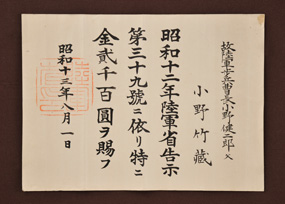 故陸軍歩兵曹長小野健二郎父
小野竹藏
昭和十二年陸軍省告示
第三十九號ニ依リ特ニ
金貳千百圓ヲ賜フ
昭和十三年八月一日